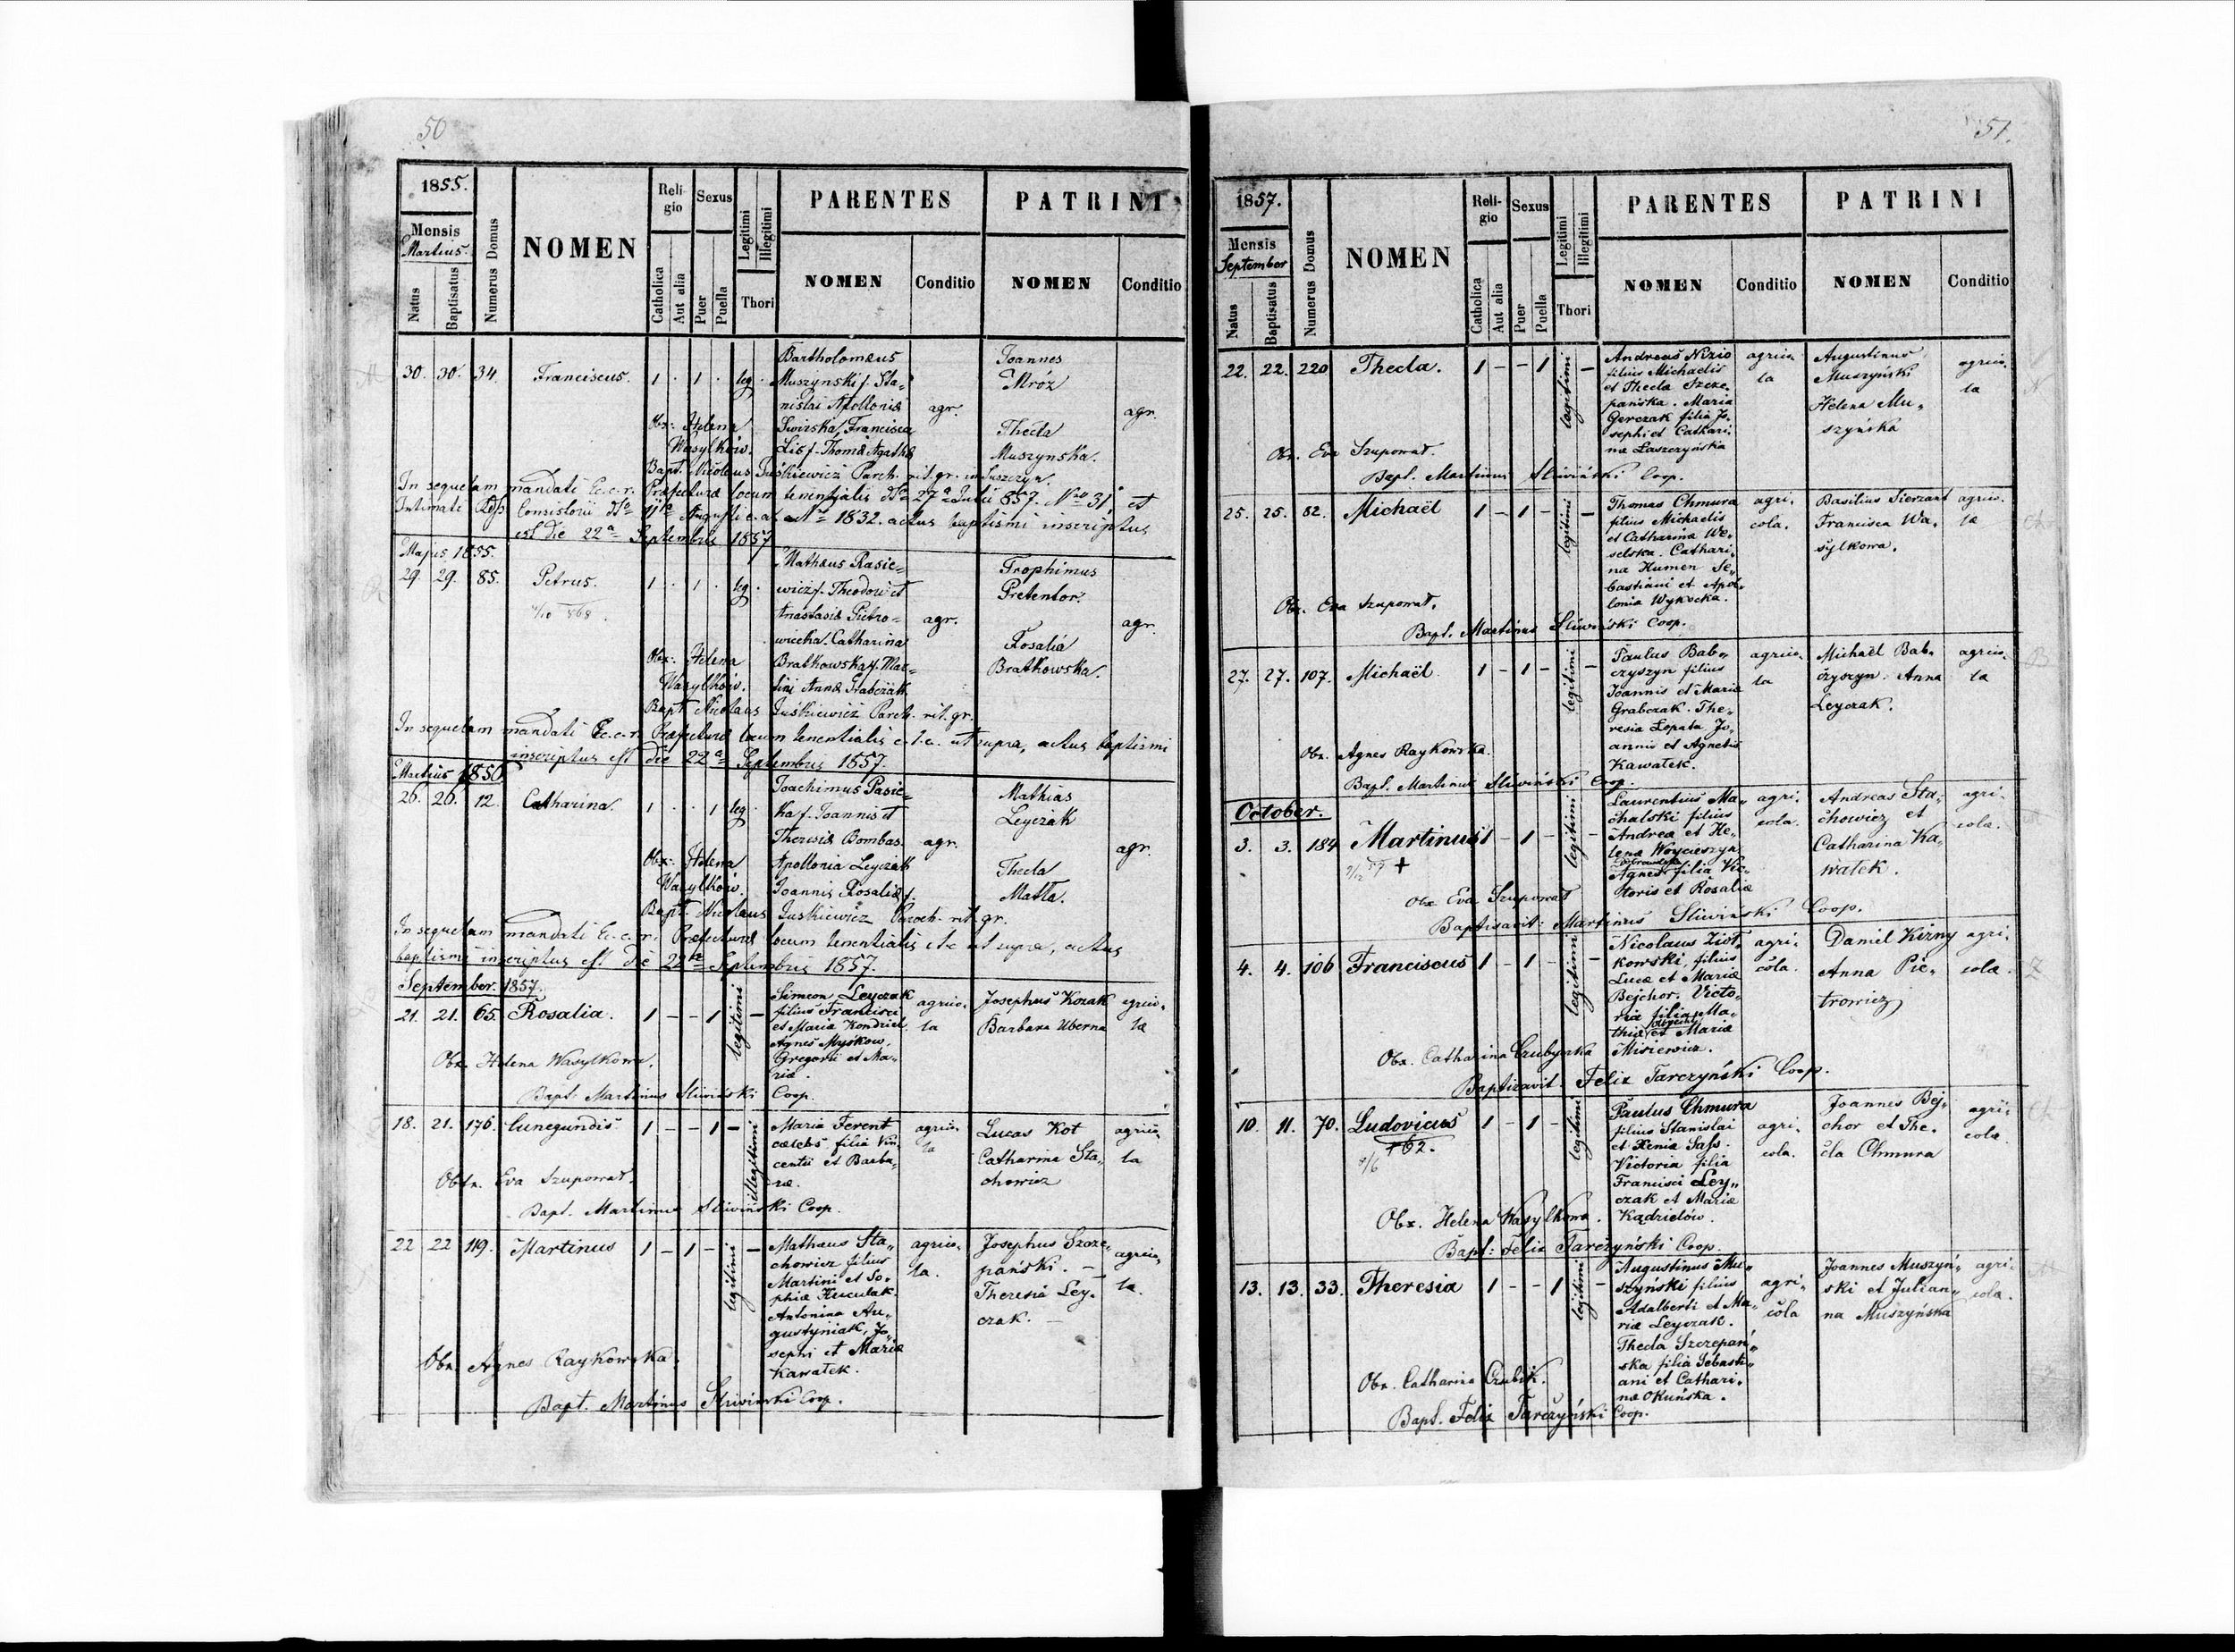 50
1855.
Mensis
Martius.
Natus
Baptisatus
Numerus Domus
NOMEN
Religio
Catholica
Aut alia
Sexus
Puer
Puella
Legitimi
Illegitimi
Thori
PARENTES
NOMEN
Conditio
PATRINI
NOMEN
Conditio
30. 30. 34. Franciscus. 1 . 1 . leg.
Bartholomæus
Muszynski f. Sta-
nislai Apolloniæ
Swirska, Francisca
Lis f. Thomæ Agathæ
agr.
Joannes
Mróz
Thecla
Muszynska.
agr.
Obx: Helena
Wasylków.
Bapt. Nicolaus Juśkiewicz Parch. rit. gr. in Suszczyn.
In sequelam mandati C.c.r. Præfecturæ locum tenentialis dto 27a Julii 857. Nro 31, et
Intimati Consistorii dto 11a Augusti c.a. Nro 1832. actus baptismi inscriptus
est die 22a Septembris 1857
Majus 1855.
29. 29. 85. Petrus. 1 . 1 . leg.
Mathæus Pasie-
wicz f. Theodori et
Anastasiæ Pietro-
wiecka. Catharina
Bratkowska f. Mar-
tini Annæ Grabczak.
agr.
Trophimus
Pretentor.
Rosalia
Bratkowska.
agr.
Obx: Helena
Wasylków.
Bapt. Nicolaus Juśkiewicz Parch. rit. gr.
In sequelam mandati C.c.r. Præfecturæ locum tenentialis e.t.c. ut supra, actus baptismi
inscriptus est die 22a Septembris 1857.
Martius 1856
26. 26. 12. Catharina. 1 . . 1 leg.
Joachimus Pasie-
ka f. Joannis et
Theresiæ Bombas.
Apollonia Leyczak
Joannis Rosaliæ f.
agr.
Mathias
Leyczak
Thecla
Matla.
agr.
Obx: Helena
Wasylków.
Bapt. Nicolaus Juskiewicz Paroch. rit. gr.
In sequelam mandati C.c.r. Præfecturæ locum tenentialis etc ut supra, actus
baptismi inscriptus est die 22a Septembris 1857.
September. 1857.
21. 21. 65. Rosalia. 1 - - 1 legitimi -
Simeon Leyczak
filius Francisci
et Maria Kondziel.
Agnes Myśkow,
Gregorii et Ma-
riæ.
agrico-
la
Josephus Kozak
Barbara Uberna
agrico-
læ
Obx. Helena Wasylkowa.
Bapt. Martinus Sliwiński Coop.
18. 21. 176. Cunegundis 1 - - 1 - illegitimi
Maria Ferent
cælebs filia Vin-
centii et Barba-
ræ.
agrico-
la
Lucas Kot
Catharina Sta-
chowicz
agrico-
la
Obtx. Eva Szuporrat.
Bapt. Martinus Sliwiński Coop.
22 22 119. Martinus 1 - 1 - legitimi -
Mathæus Sta-
chowicz filius
Martini et So-
phiæ Huculak.
Antonina Au-
gustyniak, Jo-
sephi et Mariæ
Kawałek.
agrico-
la.
Josephus Szcze-
pański. -
Theresia Ley-
czak. -
agrico-
la.
Obx. Agnes Raykowska.
Bapt. Martinus Sliwinski Coop.
51.
1857.
Mensis
September
Natus
Baptisatus
Numerus Domus
NOMEN
Religio
Catholica
Aut alia
Sexus
Puer
Puella
Legitimi
Illegitimi
Thori
PARENTES
NOMEN
Conditio
PATRINI
NOMEN
Conditio
22. 22. 220 Thecla. 1 - - 1 legitimi -
Andreas Nizio
filius Michaelis
et Thecla Szcze-
pańska. Maria
Gerczak filia Jo-
sephi et Cathari-
næ Laszczyńska
agrico-
la
Augustinus
Muszyński
Helena Mu-
szyńska
agrico-
la
Obx. Eva Szuporrat.
Bapt. Martinus Sliwiński Coop.
25. 25. 82. Michaël 1 - 1 - legitimi -
Thomas Chmura
filius Michaelis
et Catharina We-
selska. Cathari-
na Humen Se-
bastiani et Apol-
lonia Wykocka.
agri-
cola.
Basilius Sierzant
Francisca Wa-
sylkowa.
agrico-
læ
Obx. Eva Szuporrat.
Bapt. Martinus Sliwiński Coop.
27. 27. 107. Michaël 1 - 1 - legitimi -
Paulus Bab-
czyszyn filius
Joannis et Mariæ
Grabczak. The-
resia Łopata Jo-
annis et Agnetis
Kawałek.
agrico-
la
Michaël Bab-
czyszyn. Anna
Leyczak.
agrico-
la
Obx. Agnes Raykowska.
Bapt. Martinus Sliwiński Coop.
October.
3. 3. 184 Martinus 1 - 1 - legitimi -
+
Laurentius Ma-
chalski filius
Andreæ et He-
lenæ Woycieszyn
Agnes filia Vic-
toris et Rosaliæ
agri-
cola.
Andreas Sta-
chowicz et
Catharina Ka-
wałek.
agri-
cola.
Obx. Eva Szuporrat
Baptisavit: Martinus Sliwiński Coop.
4. 4. 106 Franciscus 1 - 1 - legitimi -
Nicolaus Ziół-
kowski, filius
Lucæ et Mariæ
Bejchor. Victo-
ria filia Ma-
thiæ et Mariæ
Misiewicz.
agri-
cola.
Daniel Kizny
Anna Pie-
trowicz
agri-
colæ.
Obx. Catharina Czubynka
Baptizavit. Felix Tarczyński Coop.
10. 11. 70. Ludovicus 1 - 1 - legitimi
+62.
8/6
Paulus Chmura
filius Stanislai
et Xeniæ Sass.
Victoria filia
Francisci Ley-
czak et Mariæ
Kądzielów.
agri-
cola.
Joannes Bej-
chor et The-
cla Chmura
agri-
colæ
Obx. Helena Wasylkowa.
Bapt: Felix Tarczyński Coop.
13. 13. 33. Theresia 1 - - 1 legitimi -
Augustinus Mu-
szyński filius
Adalberti et Ma-
riæ Leyczak.
Thecla Szczepań-
ska filia Sebasti-
ani et Cathari-
næ Okuńska.
agri-
cola
Joannes Muszyń-
ski et Julian-
na Muszyńska
agri-
cola.
Obx. Catharina Czubik.
Bapt. Felix Tarczyński Coop.